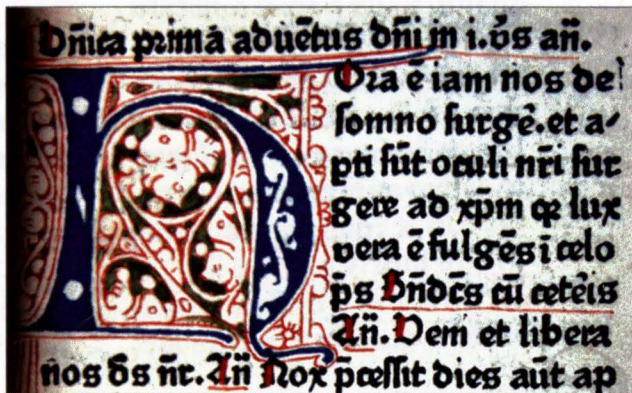 Dñica prima aduẽtus dñi in i. vs̄ añ.
HOra ẽ iam nos de
somno surgẽ. et a⸗
pti sũt oculi nr̃i sur
gere ad xp̄m qꝛ lux
vera ẽ fulgẽs ĩ celo
p̄s Bñdc̄s cũ ceteĩs
Añ. Vem et libera
nos ds̄ nr̃. Añ Nox p̄cessit dies aũt ap